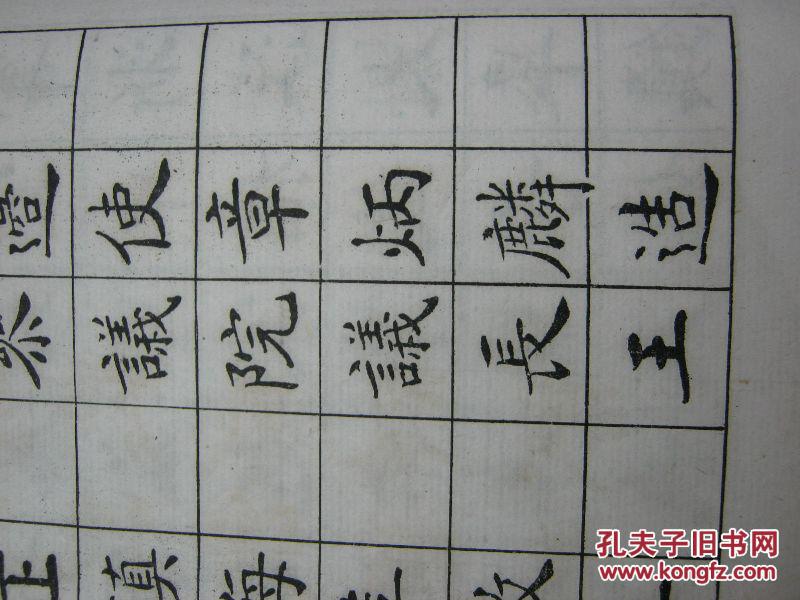 邊使章炳麟造
參議院議長王
孔夫子旧书网
www.kongfz.com